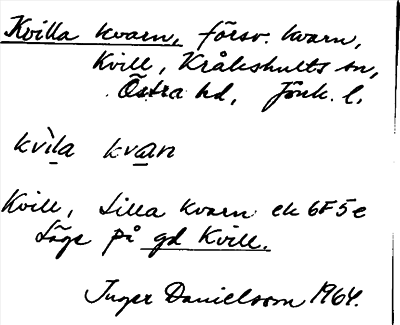 Kvilla kvarn, försv. kvarn,
Kvill, Kråkshults sn,
Östra hd, Jönk. l.
kvìla kvan
Kvill, Lilla kvarn ek 6F5e
Låge på gd Kvill.
Inger Danielsson 1964.